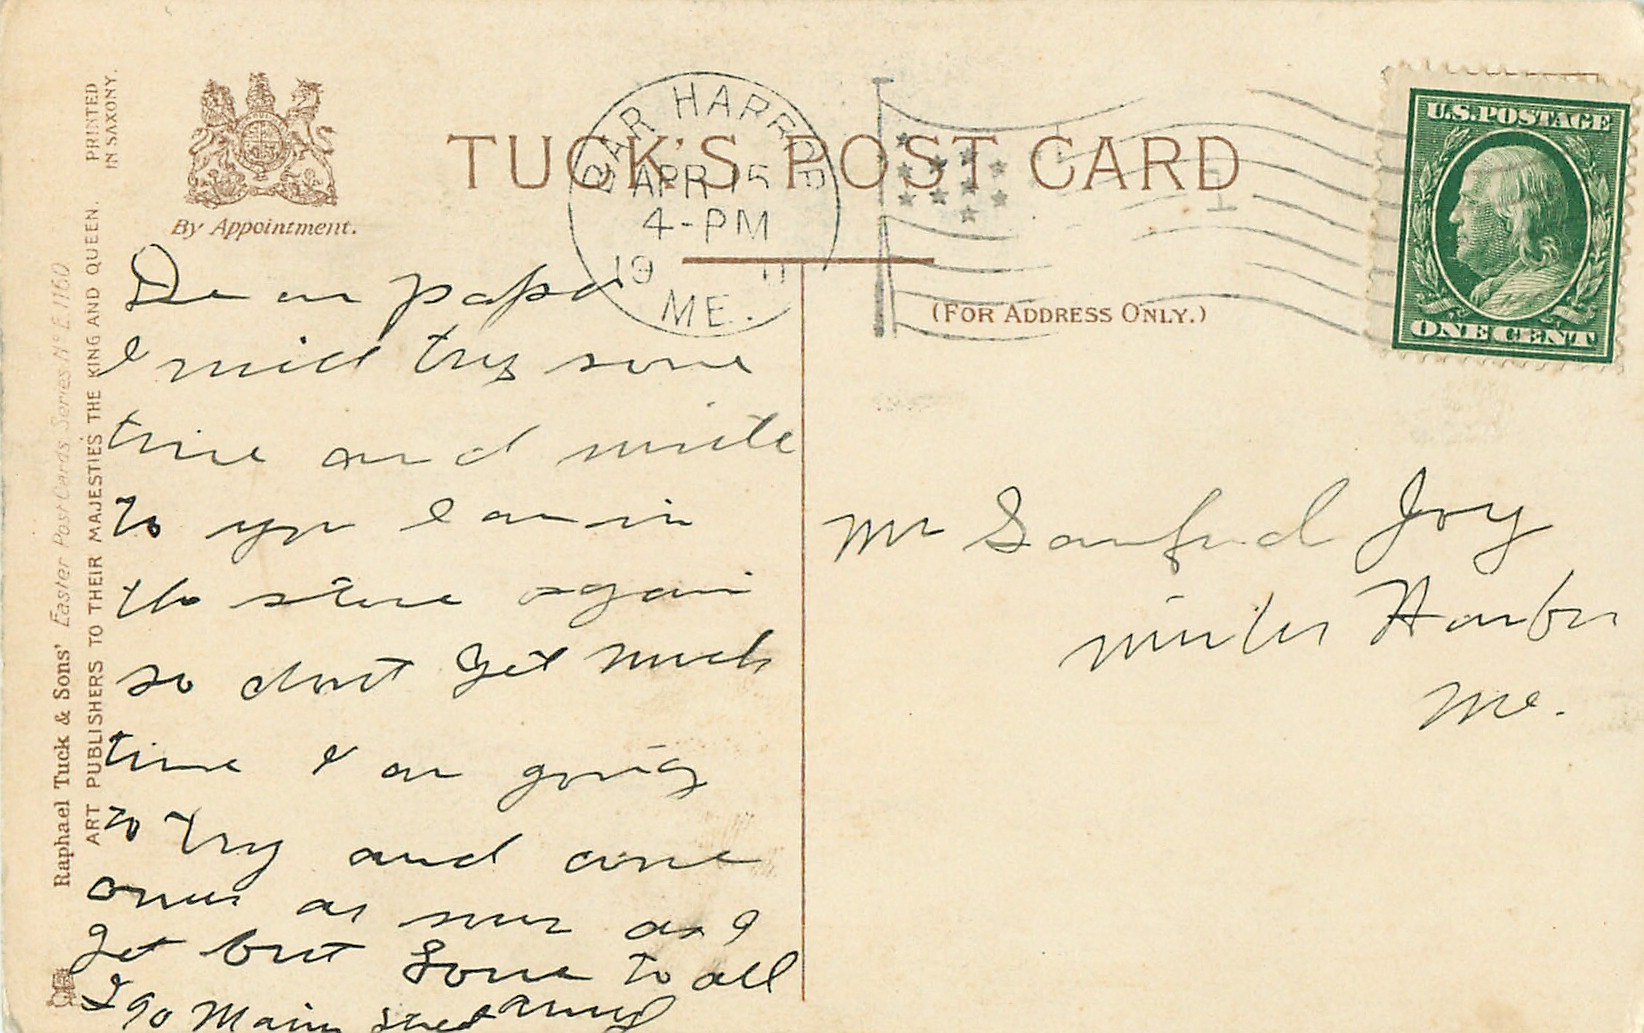 PRINTED
IN SAXONY.
By Appointment.
TUCK'S POST CARD
BAR HARBOR
APR 15
4-PM
19 11
ME.
U.S. POSTAGE
ONE CENT
(FOR ADDRESS ONLY.)
Raphael Tuck & Sons' Easter Post Cards Series No E.1160
ART PUBLISHERS TO THEIR MAJESTIES THE KING AND QUEEN.
Dear papa
I will try some
time and write
to you I am in
the store again
so dont get much
time I am going
to try and come
over as soon as I
get but Love to all
90 Main Street
Mr Sanford Joy
Winter Harbor
Me.